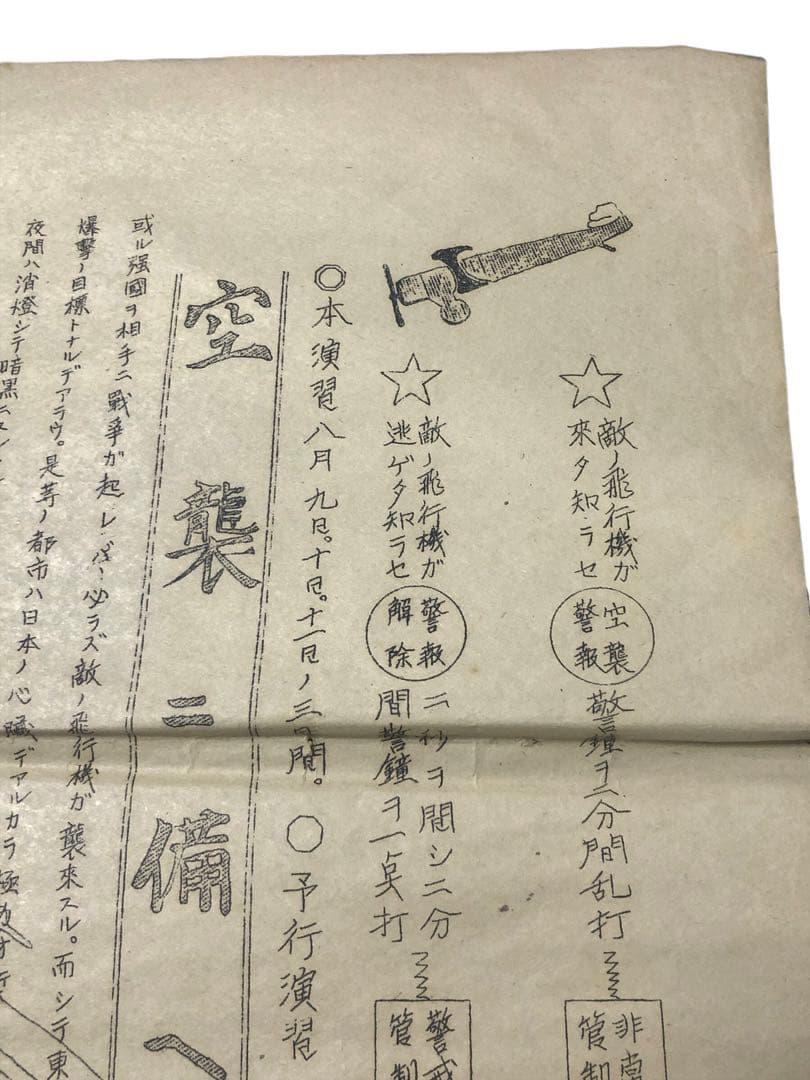 ☆敵ノ飛行機ガ
來タ知ラセ
空襲
警報
警鐘ヲ二分間乱打
非常
管制
☆敵ノ飛行機ガ
逃ゲタ知ラセ
警報
解除
二秒ヲ間シ二分
間警鐘ヲ一点打
警戒
管制
◎本演習八月九日。十日。十一日ノ三日間。○予行演習
空襲ニ備ヘ
或ル强國ヲ相手ニ戰爭ガ起レバ必ラズ敵ノ飛行機ガ襲來スル。而シテ東
爆擊ノ目標トナルデアラウ。是等ノ都市ハ日本ノ心臟デアルカラ極
夜間ハ消燈シテ暗黒ニ